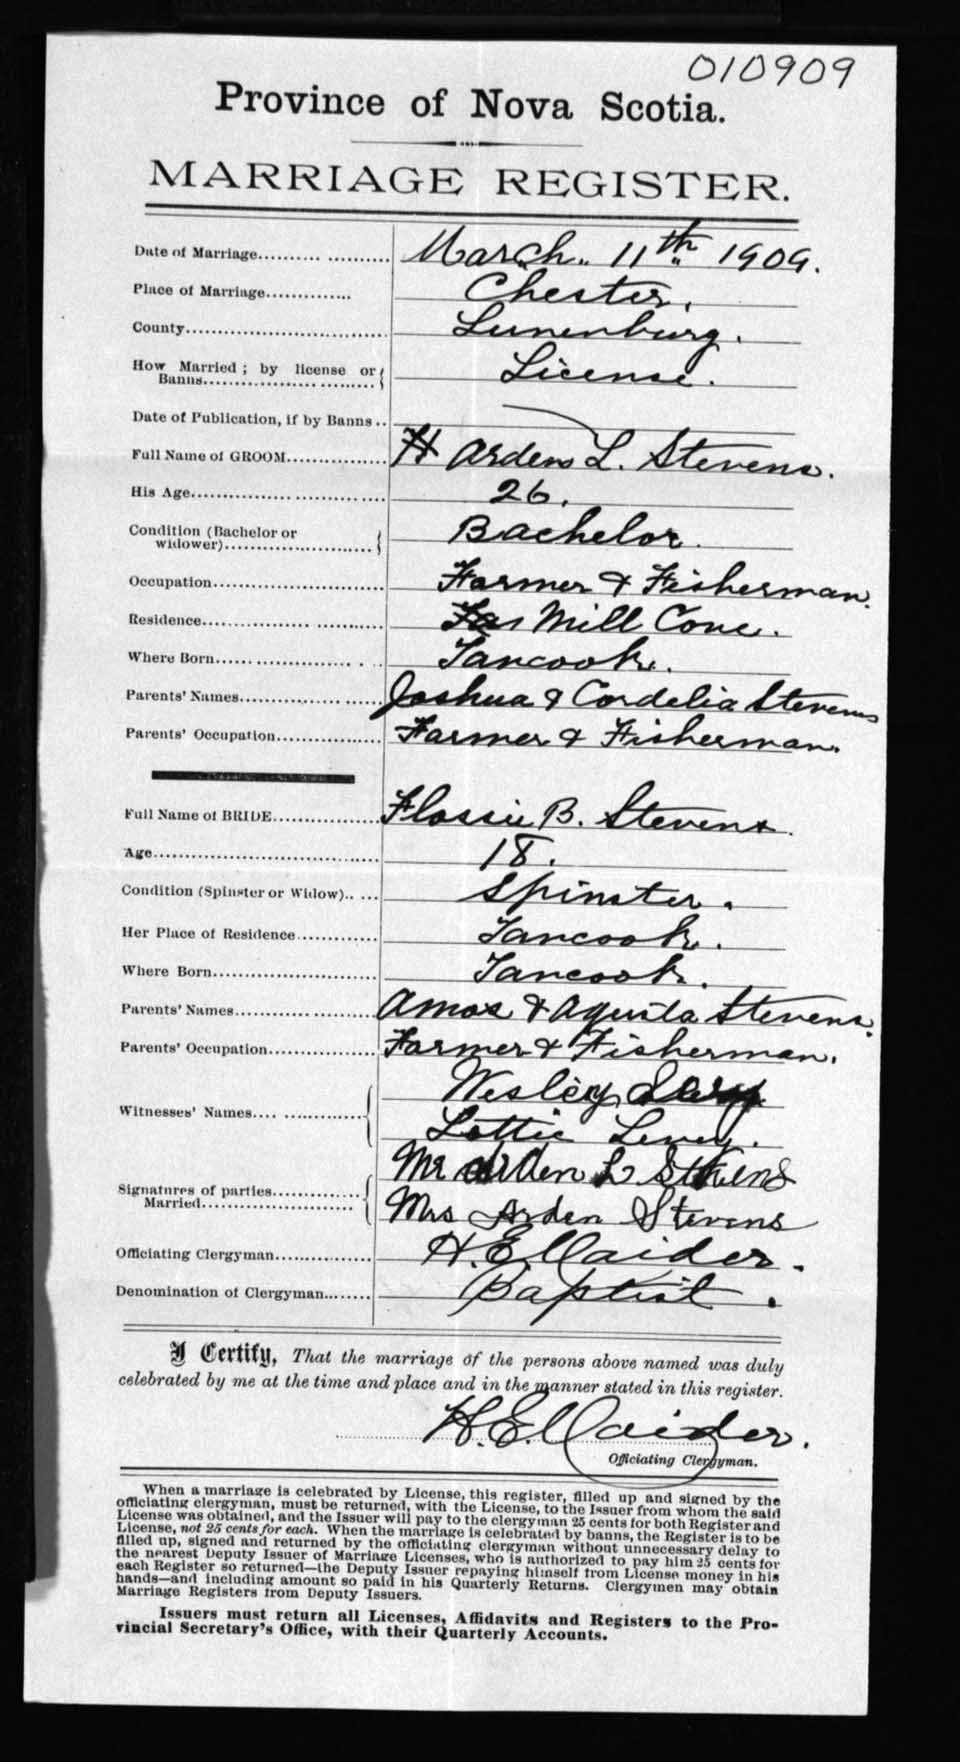 010909
Province of Nova Scotia.
MARRIAGE REGISTER.
Date of Marriage.................... March 11th 1909.
Place of Marriage.............. Chester.
County................................ Lunenburg.
How Married; by license or
Banns............................ License.
Date of Publication, if by Banns ..
Full Name of GROOM................ Arden L. Stevens.
His Age............................... 26.
Condition (Bachelor or
widower)........................ Bachelor.
Occupation............................ Farmer & Fisherman.
Residence........................... Mill Cove.
Where Born........................ Tancook.
Parents' Names....................... Joshua & Cordelia Stevens
Parents' Occupation................. Farmer & Fisherman.
Full Name of BRIDE................. Flossie B. Stevens.
Age..................................... 18.
Condition (Spinster or Widow)..... Spinster.
Her Place of Residence............. Tancook.
Where Born.......................... Tancook.
Parents' Names..................... Amos & Stevens.
Parents' Occupation................. Farmer & Fisherman.
Wesley
Witnesses' Names....................
Lottie Levy.
Mr Arden L Stevens
Signatures of parties.............
Married..........................
Mrs Arden Stevens
Officiating Clergyman.............. H.E.
Denomination of Clergyman........ Baptist.
I Certify, That the marriage of the persons above named was duly
celebrated by me at the time and place and in the manner stated in this register.
H.E.
Officiating Clergyman.
When a marriage is celebrated by License, this register, filled up and signed by the
officiating clergyman, must be returned, with the License, to the Issuer from whom the said
License was obtained, and the Issuer will pay to the clergyman 25 cents for both Register and
License, not 25 cents for each. When the marriage is celebrated by banns, the Register is to be
filled up, signed and returned by the officiating clergyman without unnecessary delay to
the nearest Deputy Issuer of Marriage Licenses, who is authorized to pay him 25 cents for
each Register so returned—the Deputy Issuer repaying himself from License money in his
hands—and including amount so paid in his Quarterly Returns. Clergymen may obtain
Marriage Registers from Deputy Issuers.
Issuers must return all Licenses, Affidavits and Registers to the Pro-
vincial Secretary's Office, with their Quarterly Accounts.